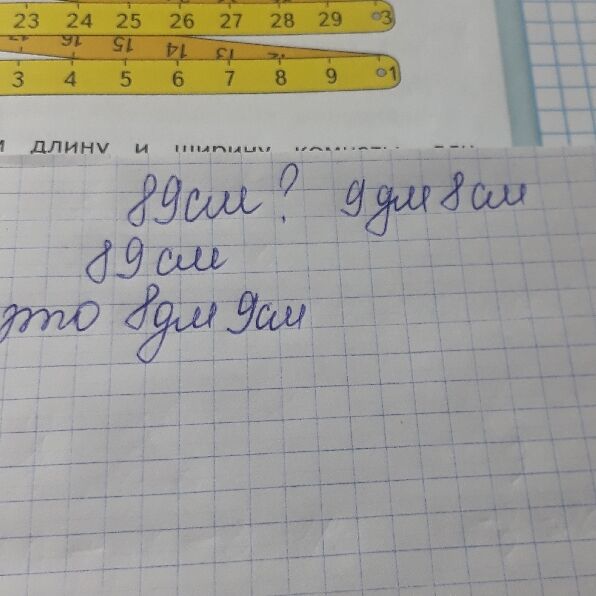 23 24 25 26 27 28 29 3
16 15 14 13
3 4 5 6 7 8 9 1
длину и ширину комнаты
89 см ? 9 дм 8 см
89 см
это 8 дм 9 см